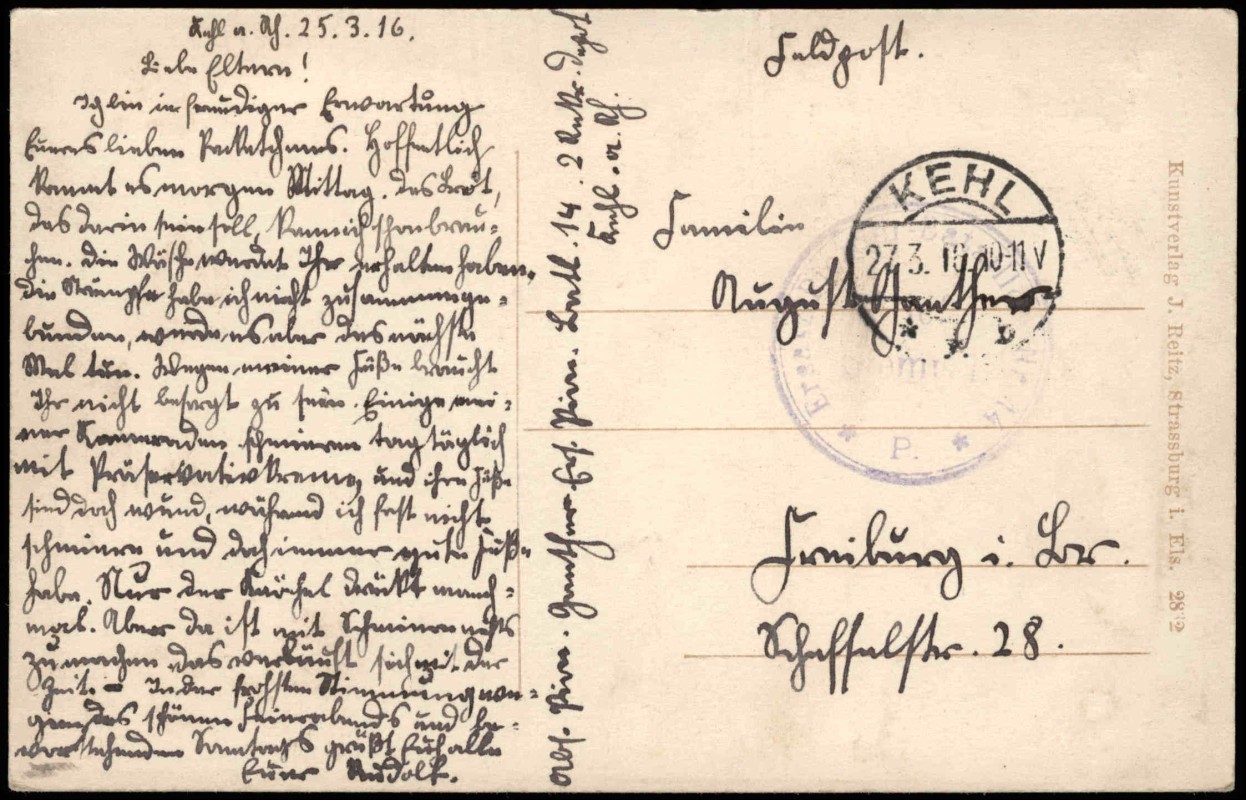 Kehl a. Rh. 25. 3. 16.
Liebe Eltern!
Ich bin in freudiger Erwartung
Eueres lieben Packetchens. Hoffentlich
kommt es morgen Mittag. Das Brot,
das darin sein soll, kann ich schon brau-
chen. Die Wäsche werdet Ihr erhalten haben.
Die Strümpfe habe ich nicht zusammenge-
bunden, werde es aber das nächste
Mal tun. Wegen meiner Füße braucht
Ihr nicht besorgt zu sein. Einige mei-
ner Kameraden schmieren tagtäglich
mit Präservativkreme, und ihre Füße
sind doch wund, während ich fast nicht
schmiere und doch immer gute Füße
habe. Nur der Knöchel drückt manch-
mal. Aber da ist mit Schmieren nichts
zu machen, das verläuft sich mit der
Zeit. – In der frohsten Stimmung we-
gen des schönen Feierabends und be-
vorstehenden Sonntags grüßt Euch alle
Euer Rudolf.
Abs. Pion. Ganther Ers. Pion. Batl. 14. 2 Rekr. Depot
Kehl. a. Rh.
Feldpost.
Familie
August Ganther
Freiburg i. Br.
Scheffelstr. 28.
KEHL
27.3. 16. 10-11 V
* b
Ersatz Nr. 14
* P. *
Kunstverlag J. Reitz, Strassburg i. Els. 2872